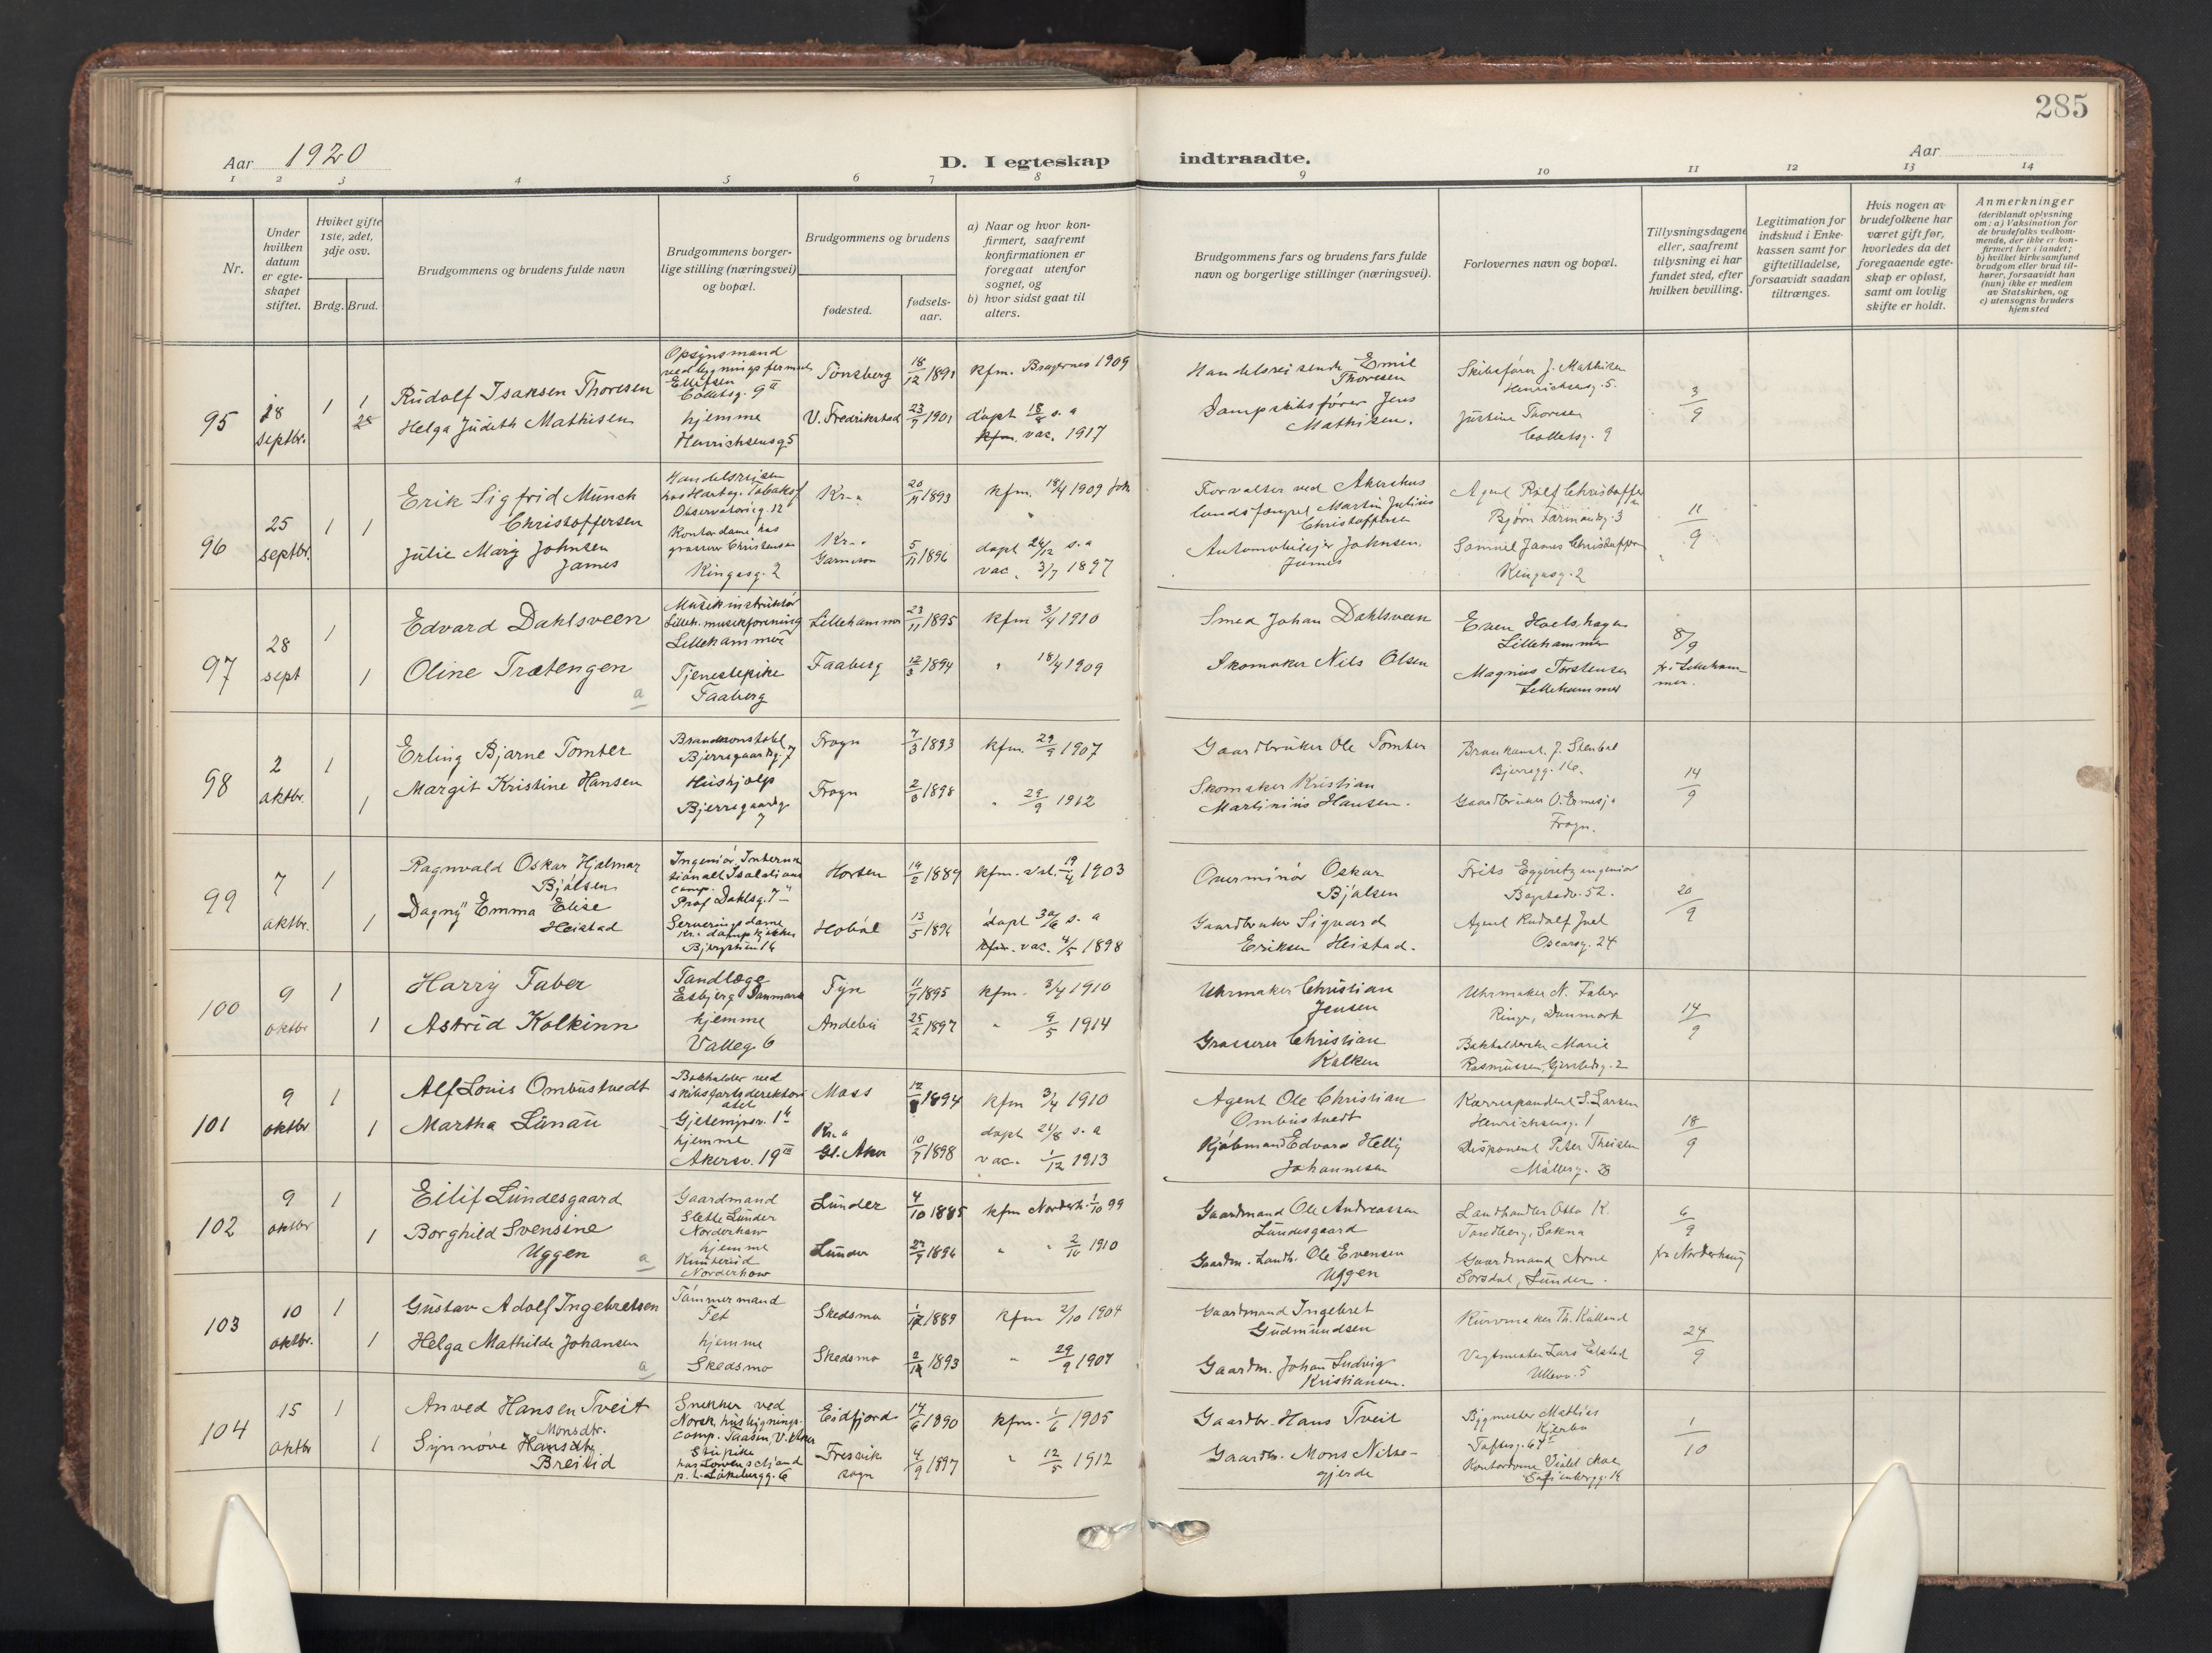 285
Aar 1920
D. I egteskap indtraadte.
Aar
1 2 3 4 5 6 7 8 9 10 11 12 13 14
Nr.
Under hvilken datum er egteskapet stiftet.
Hviket gifte 1ste, 2det, 3dje osv.
Brdg. Brud.
Brudgommens og brudens fulde navn
Brudgommens borgerlige stilling (næringsvei) og bopæl.
Brudgommens og brudens
fødested.
fødselsaar.
a) Naar og hvor konfirmert, saafremt konfirmationen er foregaat utenfor sognet, og
b) hvor sidst gaat til alters.
Brudgommens fars og brudens fars fulde navn og borgerlige stillinger (næringsvei).
Forlovernes navn og bopæl.
Tillysningsdagene eller, saafremt tillysning ei har fundet sted, efter hvilken bevilling.
Legitimation for indskud i Enkekassen samt for giftetilladelse, forsaavidt saadan tiltrænges.
Hvis nogen av brudefolkene har været gift før, hvorledes da det foregaaende egteskap er opløst, samt om lovlig skifte er holdt.
Anmerkninger
(deriblandt oplysning om: a) Vaksination for de brudefolks vedkommende, der ikke er konfirmert her i landet; b) hvilket kirkesamfund brudgom eller brud tilhører, forsaavidt han (hun) ikke er medlem av Statskirken, og c) utensogns bruders hjemsted
95
18 septbr.
1 1
Rudolf Isaksen Thoresen
Opsynsmand ved bygningsfirmaet Ellefsen
Colletsg. 9 II
Tønsberg
18/12 1891
kfm. Bragernes 1909
Handelsreisende Emil Thoresen
Skibsfører J. Mathisen
Henrichsensg. 5.
3/9
Helga Judith Mathisen
hjemme
Henrichsensg 5
V. Fredrikstad
23/7 1901
døpt 18/8 s. a
kfm. vac. 1917
Dampskibsfører Jens Mathisen.
Justine Thoresen
Colletsg. 9
96
25 septbr.
1 1
Erik Sigfrid Munch Christoffersen
Observatorieg. 12
Kr.a
20/11 1893
kfm. 18/4 1909
Forvalter ved Akershus landsfængsel Martin Julius Christoffersen
Agent Rolf Christoffersen
Bjørn Farmandsg. 3
11/9
Julie Mary Johnsen James
Kontordame hos grosserer Christensen
Kingosg. 2
Kr.a Garnison
5/11 1896
døpt 26/12 s. a
vac. 3/7 1897
Automobileier Johnsen James
Samuel James Christoffersen
Kingosg. 2
97
28 sept
1
Edvard Dahlsveen
Musikinstruktør Lilleh. musikforening
Lillehammer
Lillehammer
23/11 1895
kfm 3/4 1910
Smed Johan Dahlsveen
Even Hoelshagen
Lillehammer
8/9
fr. Lillehammer.
1
Oline Trætengen
a
Tjenestepike
Faaberg
Faaberg
12/3 1894
" 18/4 1909
Skomaker Nils Olsen
Magnus Torstensen
Lillehammer
98
2 oktbr.
1
Erling Bjarne Tomter
Brandkonstabel
Bjerregaardsg. 7
Frogn
7/3 1893
kfm. 29/9 1907
Gaardbruker Ole Tomter
Brankonst. J. Stenbøl
Bjerregg. 16.
14/9
1
Margit Kristine Hansen
Hushjælp
Bjerregaardsg 7
Frogn
2/3 1898
" 29/9 1912
Skomaker Kristian Martinius Hansen.
Gaardbruker O. Ermesjø
Frogn.
99
7 oktbr.
1
Ragnvald Oskar Hjalmar Bjølsen
Ingeniør Internationalt Isolations comp.
Prof Dahlsg. 7
Horten
19/2 1889
kfm. val. 19/4 1903
Overminør Oskar Bjølsen
Frits Eggeritz ingeniør
Bogstadv. 52.
20/9
1
Dagny Emma Elise Heistad
Serveringsdame Kr. dampkjøkken
Hobøl
13/5 1896
døpt 30/6 s. a
kfm. vac. 4/5 1898
Gaardbruker Sigvard Eriksen Heistad.
Agent Rudolf Juel
Oscarsg. 24
100
9 oktbr
1
Harry Faber
Tandlæge
Esbjerg Danmark
Fyn
11/7 1895
kfm. 3/4 1910
Uhrmaker Christian Jensen
Uhrmaker N. Faber
Ringe, Danmark
14/9
1
Astrid Kolkinn
hjemme
Valleg. 6
Andebu
25/2 1897
" 9/5 1914
Grosserer Christian Kolkinn
Bokholderske Marie Rasmussen, Gjerstadsg. 2
101
9 oktbr
1
Alf Louis Ombustvedt
Bokholder ved skibsfartsdirektoratet
Gjetemyrsv. 1
Moss
12/8 1894
kfm 3/4 1910
Agent Ole Christian Ombustvedt
Korrespondent S. Larsen
Henrichsensg. 1
18/9
1
Martha Lunau
hjemme
Akersv. 19 III
Kr.a Gl. Aker
10/7 1898
døpt 21/8 s. a
vac. 1/12 1913
Kjøbmand Edvard Helly Johannesen
Disponent Peter Theisen
Møllerg. 28
102
9 oktbr
1
Eilif Lundesgaard
Gaardmand
Slette Lunder
Norderhov
Lunder
4/10 1885
kfm Norderh. 1/10 99
Gaardmand Ole Andreassen Lundesgaard
Landhandler Otto K. Tandberg, Sokna
6/9
fra Norderhaug
1
Borghild Svensine Uggen
a
hjemme
Norderhov
Lunder
27/9 1896
" " 2/10 1910
Gaardm. Landh. Ole Evensen Uggen
Gaardmand Arne Sorsdal, Lunder.
103
10 oktbr.
1
Gustav Adolf Ingebretsen
Tømmermand
Fet
Skedsmo
1/12 1889
kfm 2/10 1904
Gaardmand Ingebret Gudmundsen
Kurvmaker Th. Kulland
24/9
1
Helga Mathilde Johansen
a
hjemme
Skedsmo
Skedsmo
2/12 1893
" 29/9 1907
Gaardm. Johan Ludvig Kristiansen.
Vagtmester Lars Elstad
Ullevv. 5
104
15 oktbr
1
Anved Hansen Tveit
Snekker ved Norsk husbygnings-comp. Taasen, V. Aker
Eidfjord
17/6 1890
kfm. 1/6 1905
Gaardbr. Hans Tveit
Bygmester Mathias Kjerbo
Toftesg. 67
1/10
1
Synnøve Hansdtr. Monsdtr. Breilid
Stuepike
Fresvik sogn
4/9 1897
" 12/5 1912
Gaardb. Mons Nilsegjerde
Kontordame Violet Moe
Sofienberg g. 14